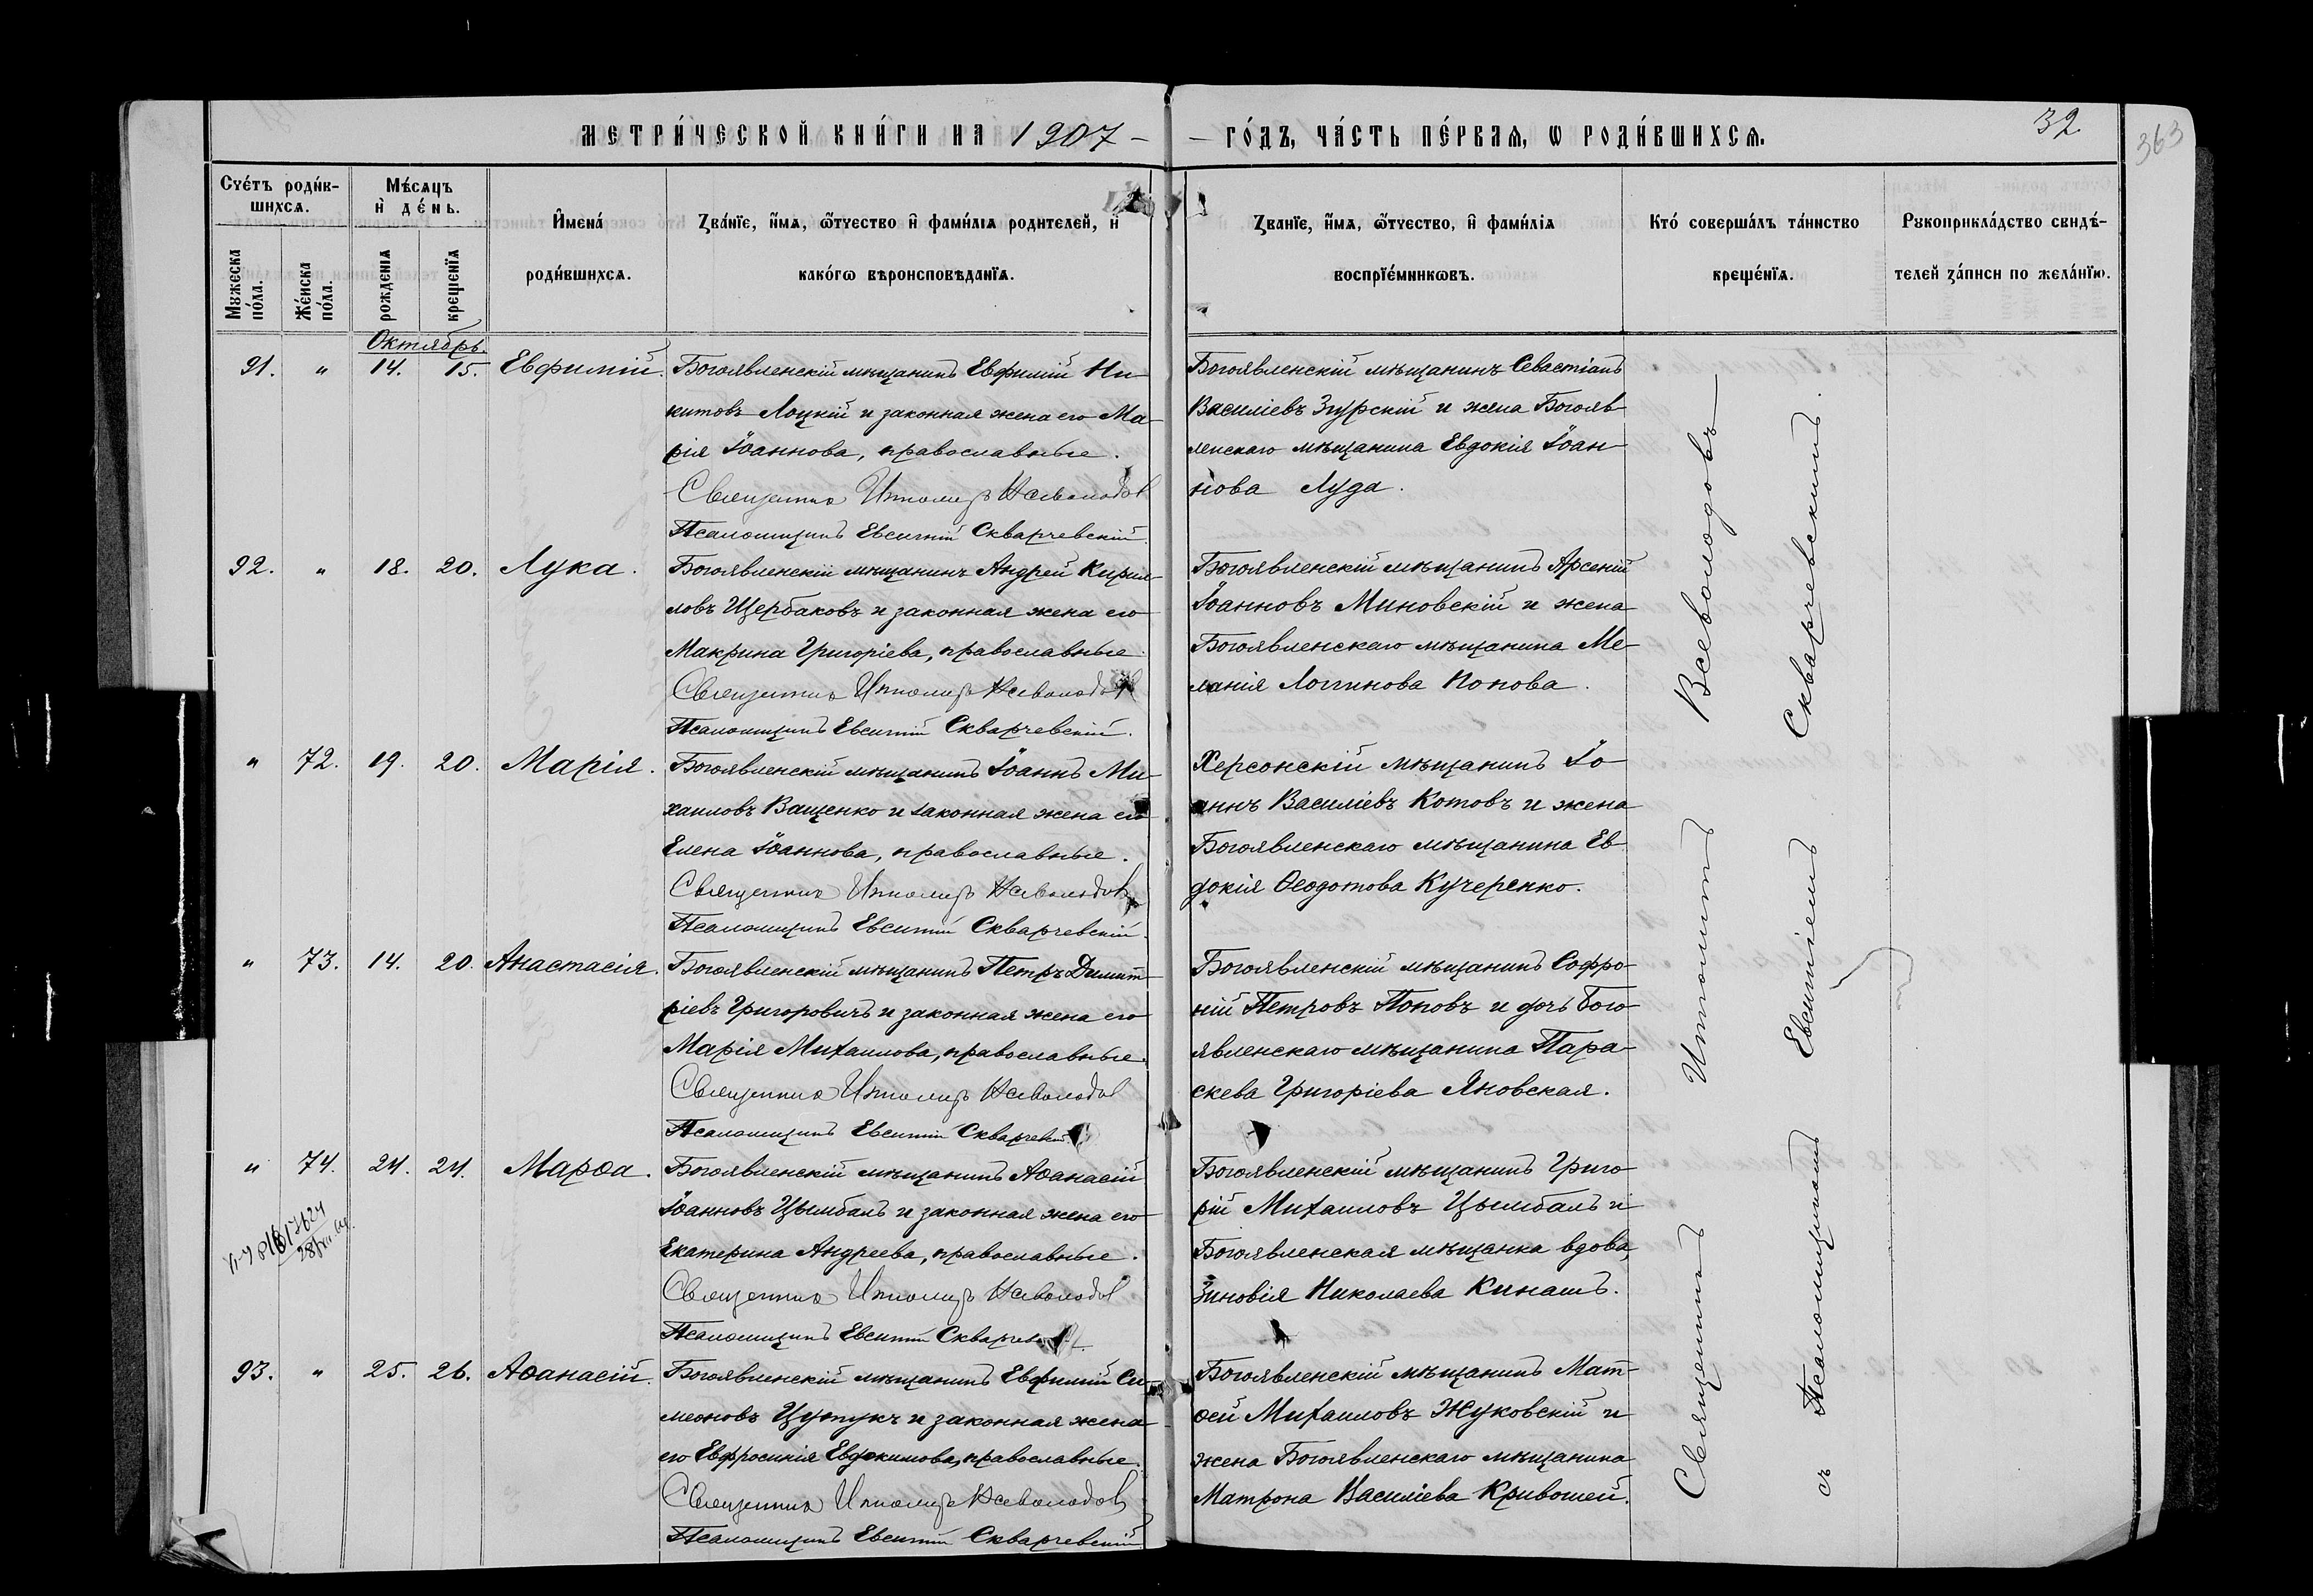 МЕТРИ́ЧЕСКОЙ КНИ́ГИ НА 1907 -
- ГО́ДЪ, ЧА́СТЬ ПЕ́РВАЯ, Ѡ РОДИ́ВШИХСЯ.
32
363
Сче́тъ роди́в-
шихся.
Му́жеска по́ла.
Же́нска по́ла.
Мѣ́сяцъ
и҆ де́нь.
рожденія
крещенїя
И҆мена́
роди́вшихся.
Зва́нїе, и҆́мя, ѿтчество и҆ фами́лїя родителей, и҆
како́гѡ вѣроисповѣданїя.
Зва́нїе, и҆́мя, ѿтчество, и҆ фами́лїя
воспріе́мникѡвъ.
Кто́ соверша́лъ та́инство
креще́нїя.
Рукоприкла́дство свидѣ́-
телей за́писи по жела́нїю.
Октябрь.
91. " 14. 15. Евфимій.
Богоявленскій мѣщанинъ Евфимій Ни-
китовъ Лоцкій и законная жена его Ма-
рія Іоаннова, православные.
Священникъ Ипполитъ Всеволодов
Псаломщикъ Евсигній Скварчевскій.
Богоявленскій мѣщанинъ Севастіанъ
Василіевъ Згурскій и жена Богояв-
ленскаго мѣщанина Евдокія Іоан-
нова Луда.
92. " 18. 20. Лука.
Богоявленскій мѣщанинъ Андрей Кирил-
ловъ Щербаковъ и законная жена его
Макрина Григоріева, православные.
Священникъ Ипполитъ Всеволодов
Псаломщикъ Евсигній Скварчевскій.
Богоявленскій мѣщанинъ Арсеній
Іоанновъ Миновскій и жена
Богоявленскаго мѣщанина Ме-
ланія Логгинова Попова.
" 72. 19. 20. Марія.
Богоявленскій мѣщанинъ Іоаннъ Ми-
хаиловъ Ващенко и законная жена его
Елена Іоаннова, православные.
Священникъ Ипполитъ Всеволодовъ
Псаломщикъ Евсигній Скварчевскій.
Херсонскій мѣщанинъ Іо-
аннъ Василіевъ Котовъ и жена
Богоявленскаго мѣщанина Ев-
докія Ѳеодотова Кучеренко.
" 73. 14. 20. Анастасія.
Богоявленскій мѣщанинъ Петръ Димит-
ріевъ Григоровичъ и законная жена его
Марія Михаилова, православные.
Священникъ Ипполитъ Всеволодов
Псаломщикъ Евсигній Скварчевскій.
Богоявленскій мѣщанинъ Софро-
ній Петровъ Поповъ и дочь Бого-
явленскаго мѣщанина Пара-
скева Григоріева Яновская.
" 74. 24. 24. Марѳа.
Богоявленскій мѣщанинъ Аѳанасій
Іоанновъ Цымбалъ и законная жена его
Екатерина Андреева, православные.
Священникъ Ипполитъ Всеволодов
Псаломщикъ Евсигній Скварчев
Богоявленскій мѣщанинъ Григо-
рій Михаиловъ Цымбалъ и
Богоявленская мѣщанка вдова,
Зиновія Николаева Кинашъ.
93. " 25. 26. Аѳанасій.
Богоявленскій мѣщанинъ Евфимій Си-
меоновъ Цупукъ и законная жена
его Евфросинія Евдокимова, православные.
Священникъ Ипполитъ Всеволодовъ
Псаломщикъ Евсигній Скварчевскій
Богоявленскій мѣщанинъ Мат-
ѳей Михаиловъ Жуковскій и
жена Богоявленскаго мѣщанина
Матрона Василіева Кривошей.
Священникъ Ипполитъ Всеволодовъ
съ Псаломщикомъ Евсигніемъ Скварчевскимъ.